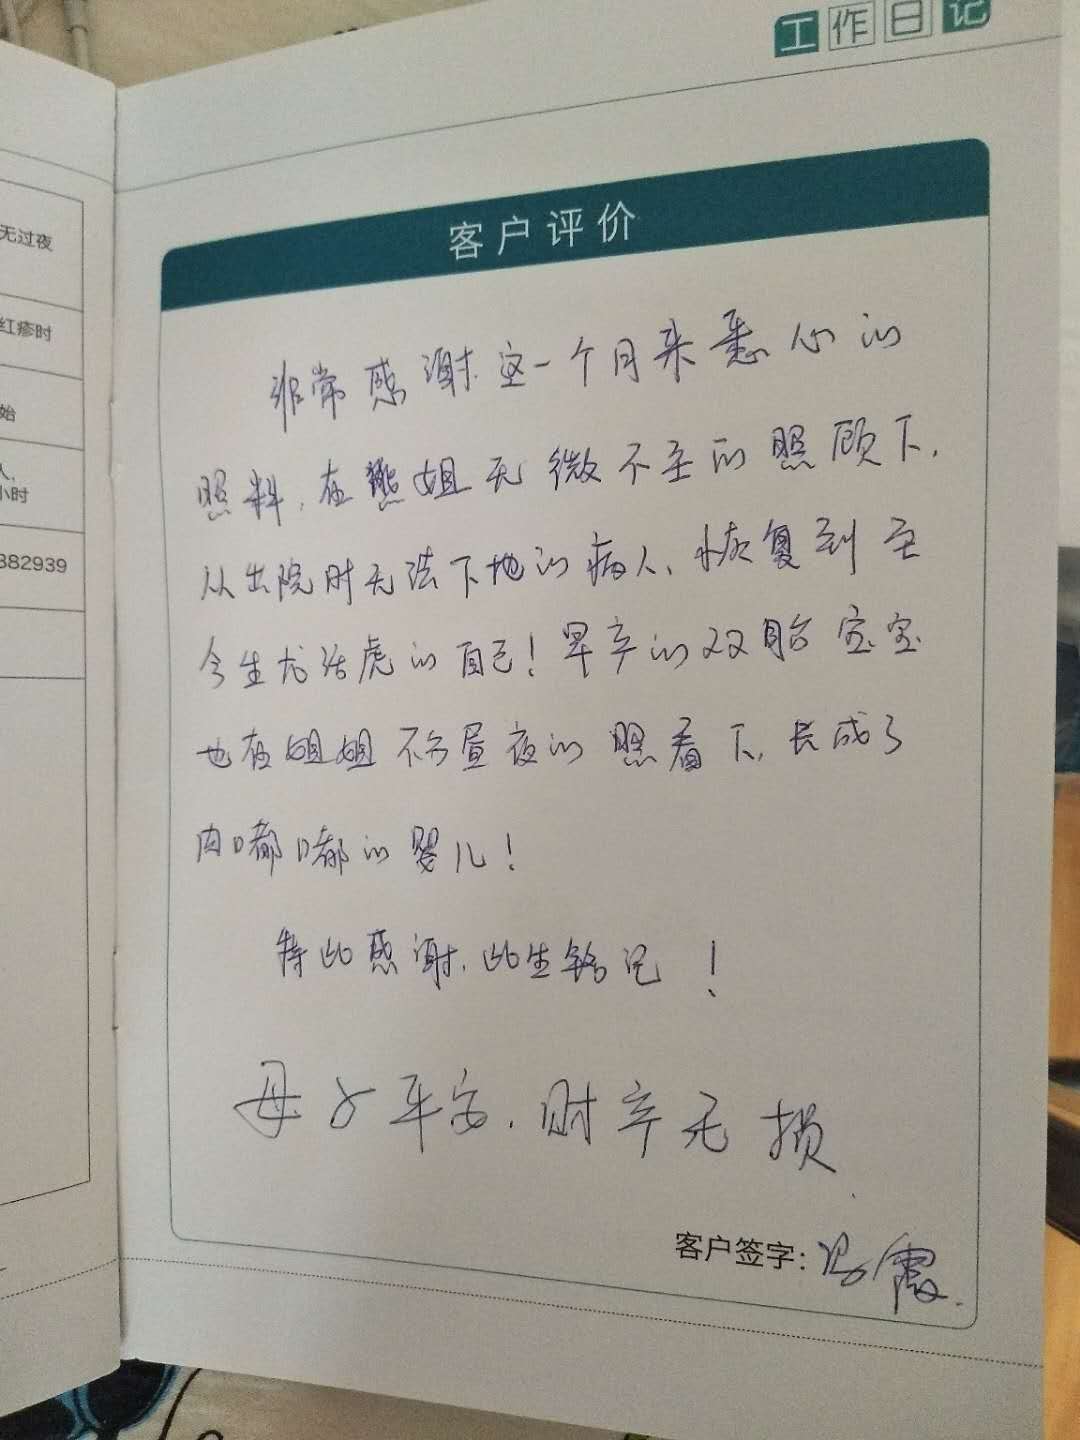 工作日记
无过夜
红疹时
始
人,
小时
882939
客户评价
非常感谢这一个月来悉心的
照料,在熊姐无微不至的照顾下,
从出院时无法下地的病人、恢复到至
今生龙活虎的自己!早产的双胎宝宝
也在姐姐不分昼夜的照看下,长成了
肉嘟嘟的婴儿!
特此感谢,此生铭记!
母子平安,财产无损
客户签字:冯霞.